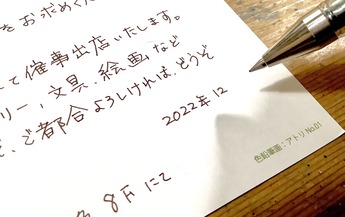 をお求めくだ
て催事出店いたします。
リー、文具、絵画など
、ご都合よろしければ、どうぞ
2022年12
8Fにて
色鉛筆画:アトリ No.01